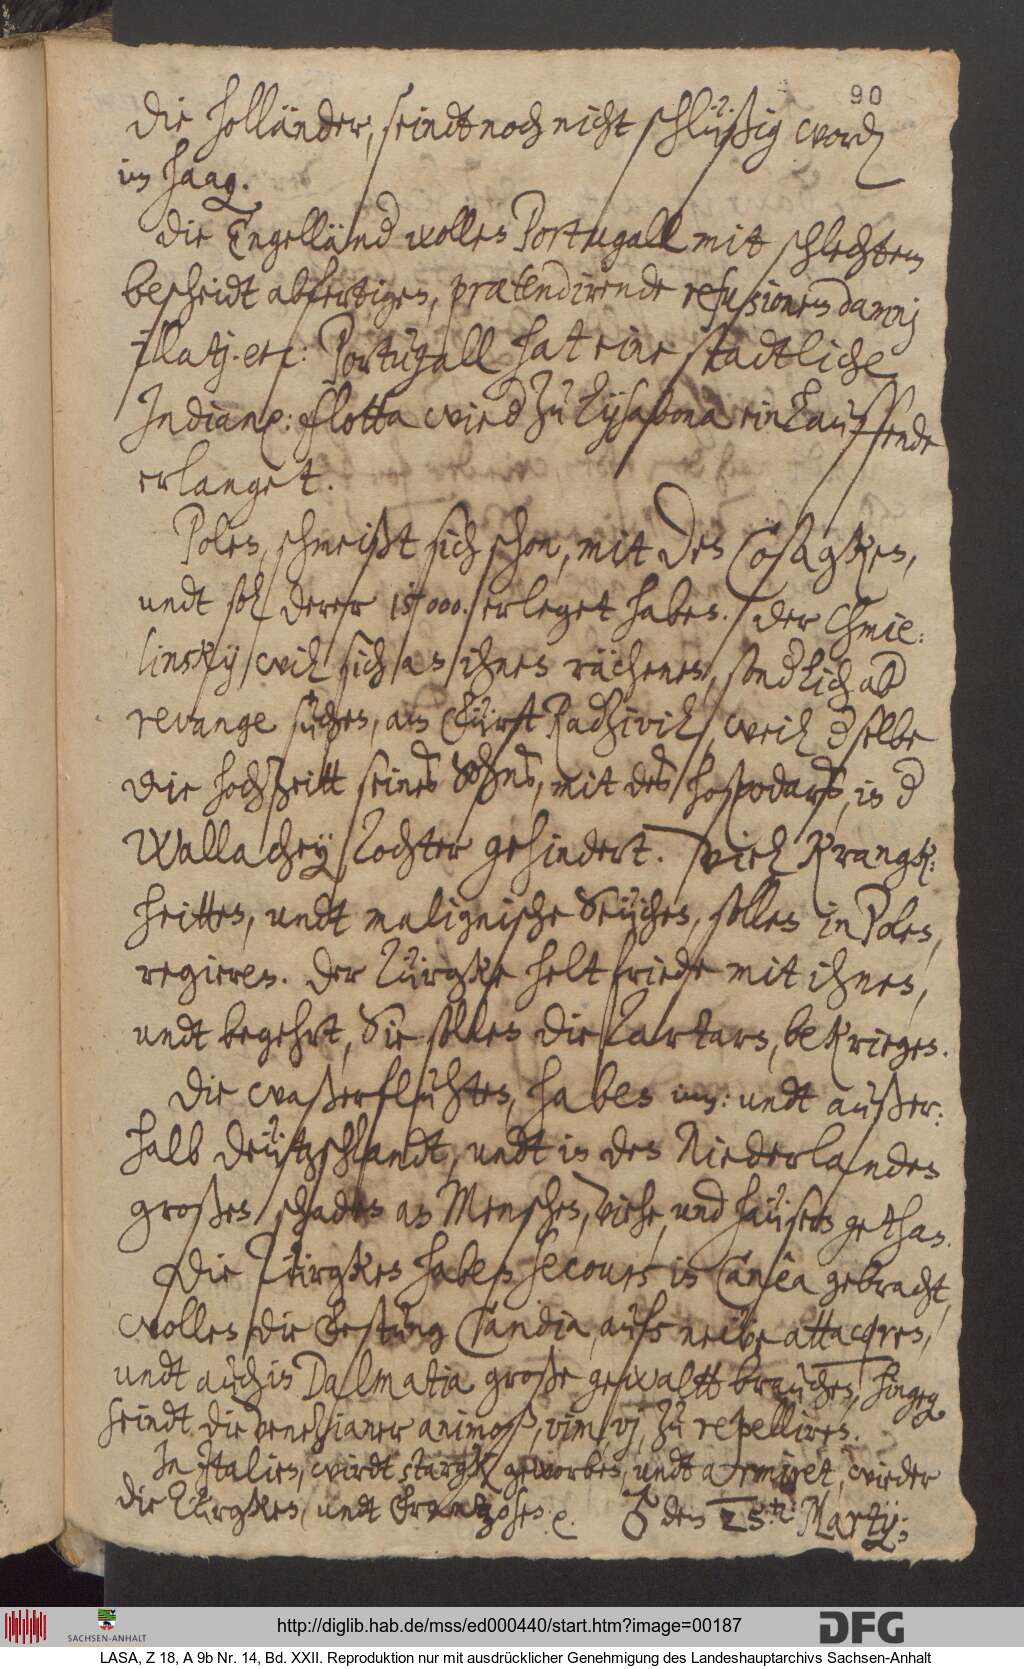 90
Die Holländer, seindt noch nicht schlüßig word
im Haag.
Die Engelländ wollen Portugall mit schlechtem
bescheidt abfertigen, prætendirende refusionem damnj
illatj. etc: Portugall hat eine stadtliche
Indiane: flotta wied zu Lysabona einlauffende
erlanget.
Polen, schmeißt sich schon, mit den Cosagken,
undt soll derer 15000. erleget haben. der Chmie:
linsky will sich an ihnen rächenen, sond lich ab
revange suchen, am Fürst Radzivil, weil dselbe
die hochzeitt seines Sohns, mit des hospodars, in d
Wallachey Tochter gehindert. Viel Krangk:
heitten, undt malignische Seuchen, sollen in Polen,
regieren. Der Türgke helt friede mit ihnen,
undt begehrt, Sie sollen die Tartarn, bekriegen.
Die waßerfluhten, haben inn: undt außer:
halb Deützschlandt, undt in den Niederlanden
großen schaden an Menschen, viehe, und häusern gethan.
Die Türgken haben secours in Canea gebracht,
wollen die Festung Candia, aufs neüe attacqren,
undt auch in Dalmatia große gewaltt brauchen, hingeg
seindt die Venezianer animoß, vim vj, zu repelliren.
In Italien, wirdt stargk geworben, undt armiret, wieder
die Türgken, undt Frantzosen. e. ♂ den 25.ten: Martij:
http://diglib.hab.de/mss/ed000440/start.htm?image=00187
SACHSEN-ANHALT
DFG
LASA, Z 18, A 9b Nr. 14, Bd. XXII. Reproduktion nur mit ausdrücklicher Genehmigung des Landeshauptarchivs Sachsen-Anhalt